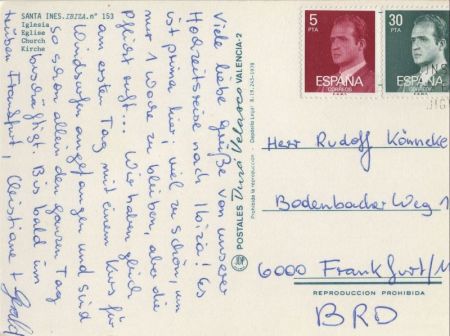 SANTA INES. IBIZA. nº 153
Iglesia
Eglise
Church
Kirche
Viele liebe Grüße von unserer
Hochzeitsreise nach Ibiza! Es
ist prima hier; viel zu schön, um
nur 1 Woche zu bleiben, aber die
Pflicht ruft... Wir haben gleich
am ersten Tag mit einem Kurs für
Windsurfen angefangen und sind
so schon allein den ganzen Tag
beschäftigt. Bis bald im
trüben Frankfurt, Christiane +
POSTALES Durá Velasco VALENCIA-2
Prohibida la reproducción
5
PTA
ESPAÑA
CORREOS
30
PTA
ESPAÑA
CORREOS
Herr Rudolf Könneke
Bodenbacher Weg 1
6000 Frankfurt/M
REPRODUCCION PROHIBIDA
BRD